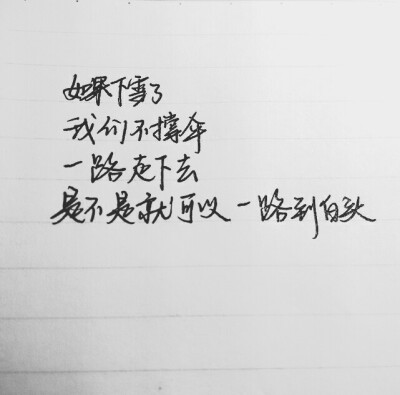 如果下雪了
我们不撑伞
一路走下去
是不是就可以一路到白头